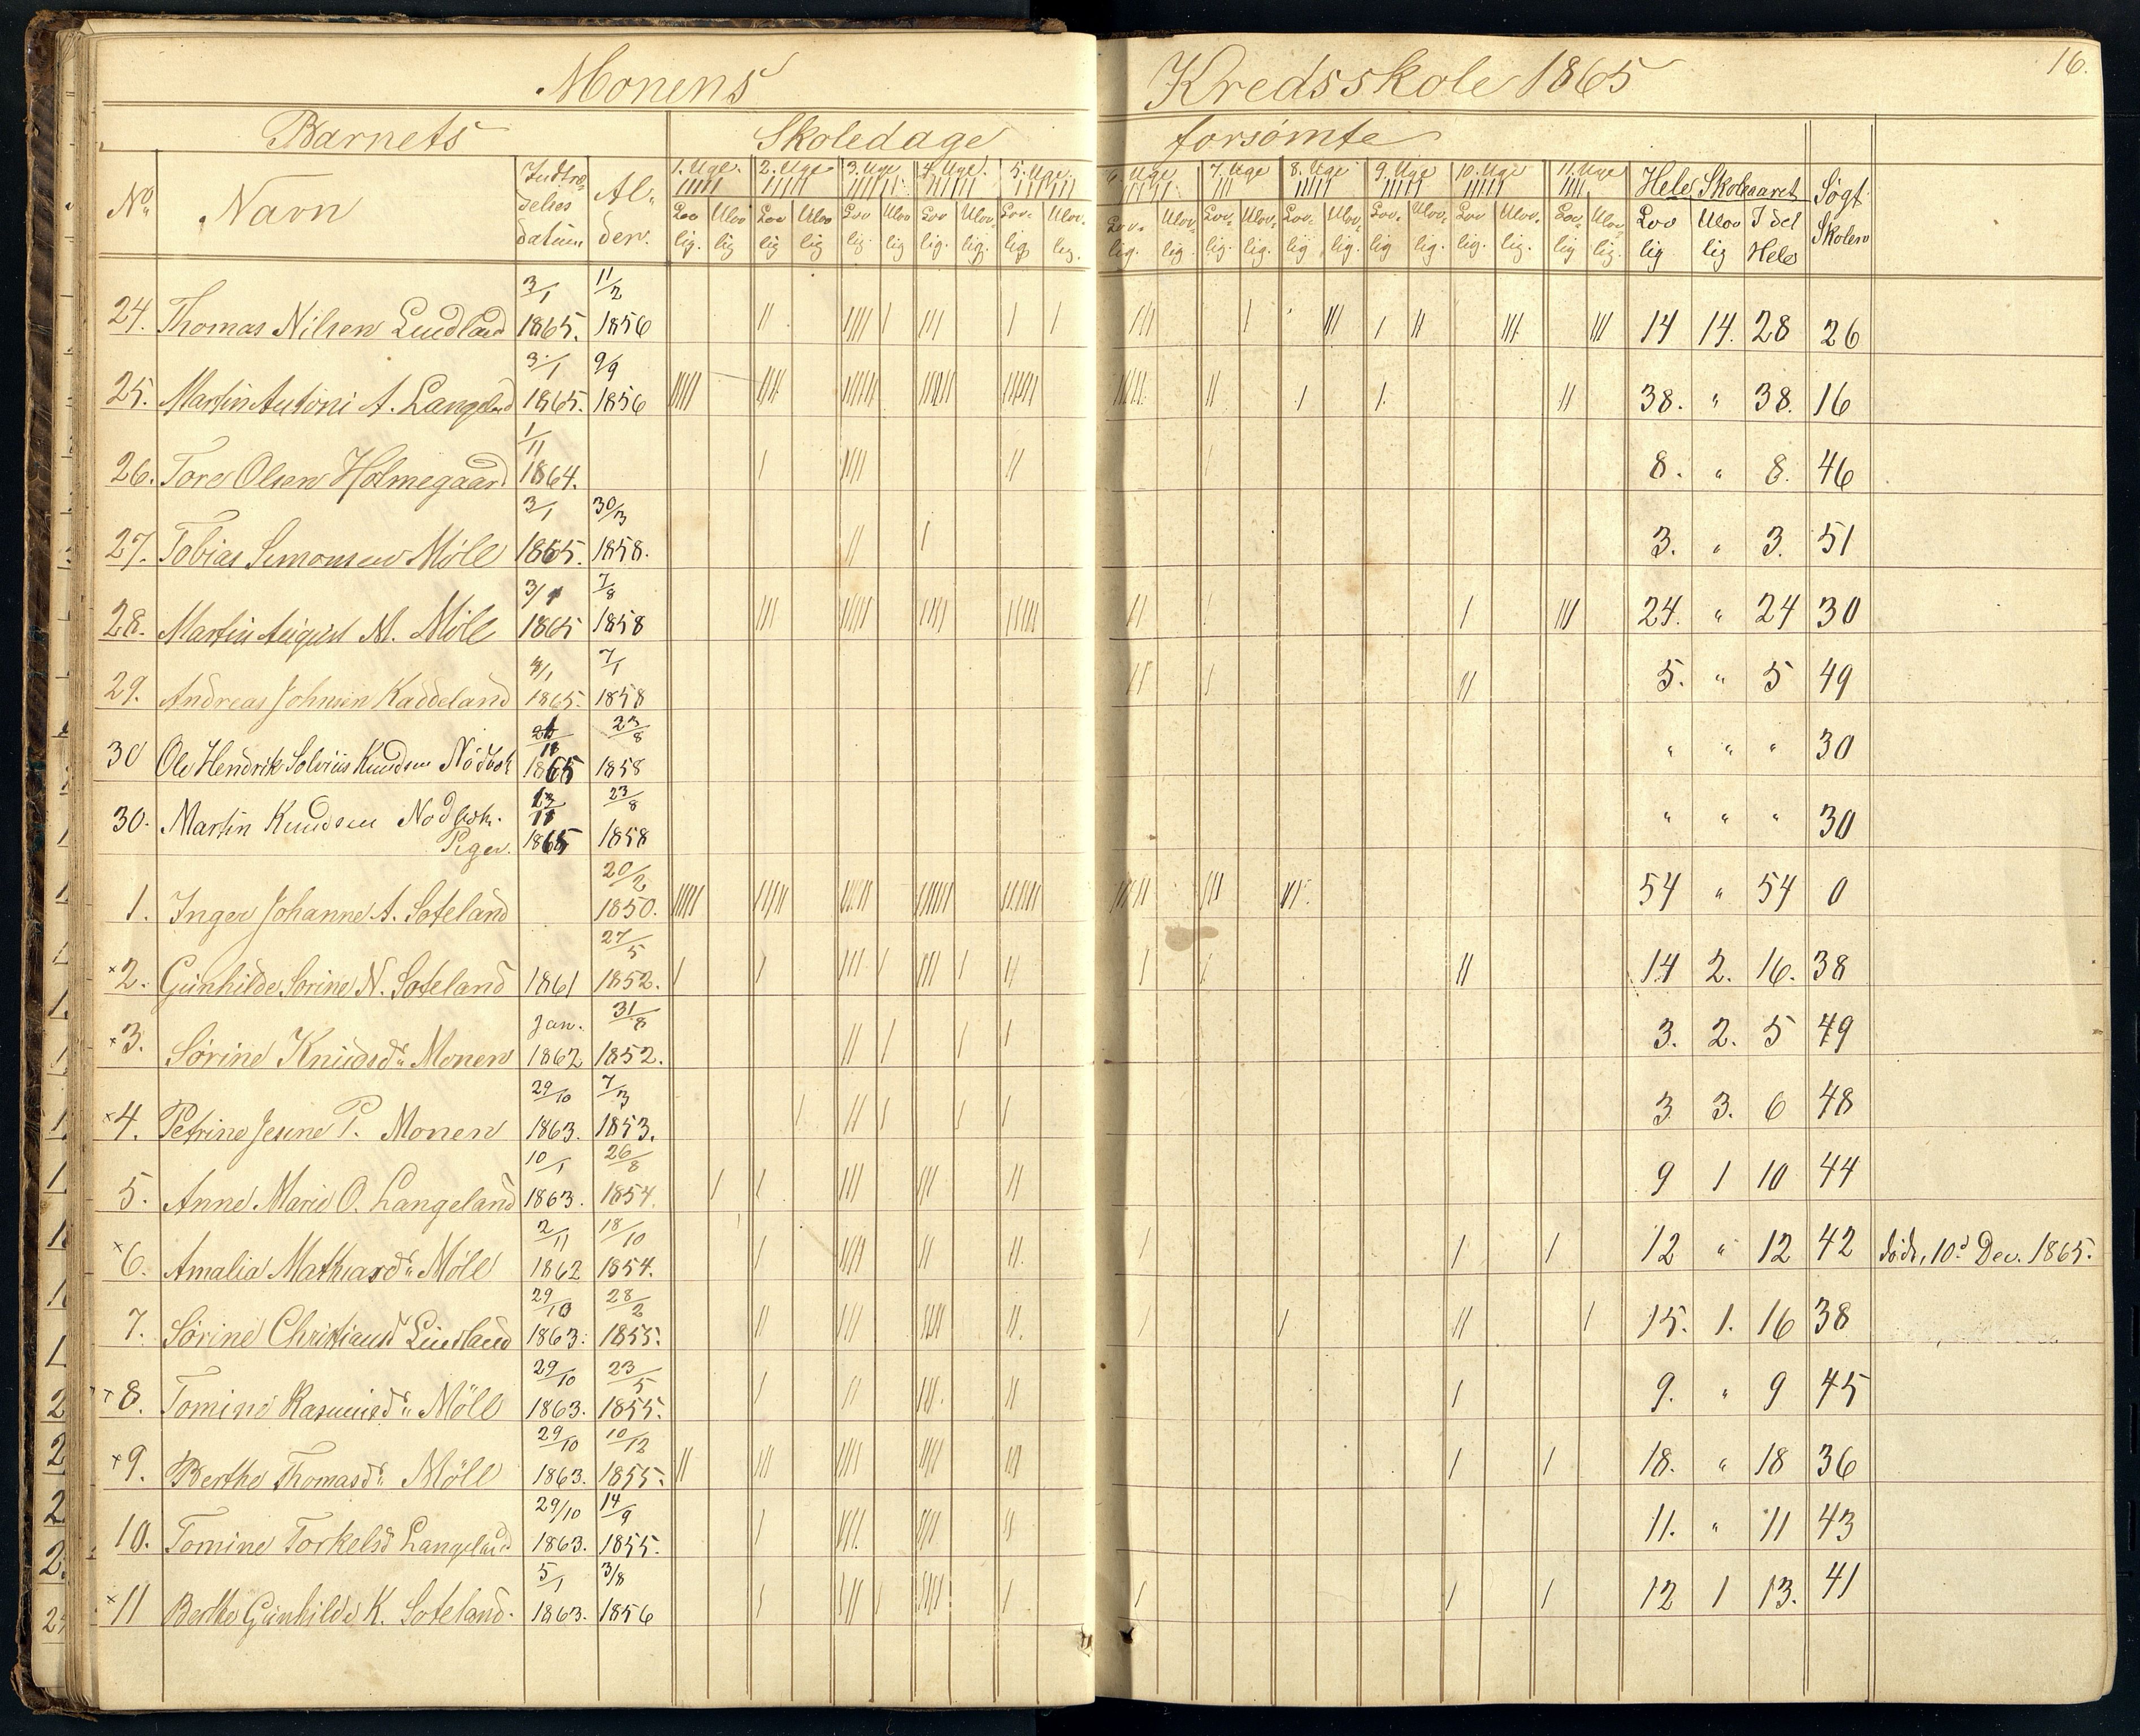 Monens Kredsskole 1865 16.
Barnets Skoledage forsømte
No. Navn Indtræ-delses datum Al-der. 1. Uge. 2. Uge 3. Uge 4. Uge. 5. Uge. 6. Uge 7. Uge 8. Uge 9. Uge 10. Uge 11. Uge Hele Skoleaaret Søgt Skolen
Lov lig. Ulov lig Lov lig Ulov lig Lov lig. Ulov lig Lov lig. Ulov. lig. Lov. lig Ulov. lig. Lov. lig. Ulov. lig. Lov. lig. Ulov. lig. Lov. lig. Ulov. lig. Lov. lig Ulov. lig. Lov lig. Ulov. lig. Lov lig Ulov lig. Lov lig Ulov lig I det Hele
3/1 11/2
24. Thomas Nilsen Lindland 1865. 1856 14 14. 28 26
3/1 9/9
25. Martin Antoni A. Langeland 1865. 1856 38. " 38. 16
1/11
26. Tore Olsen Holmegaard 1864. 8. " 8. 46
3/1 30/3
27. Tobias Simonsen Möll 1865. 1858. 3. " 3. 51
3/1 7/8
28. Martin August M. Möll 1865 1858 24. " 24 30
3/1 7/1
29. Andreas Johnsen Kaddeland 1865. 1858 5. " 5 49
23/8
30 Ole Hendrik Knudsen 1865 1858 " " " 30
23/8
30. Martin Knudsen 1865 1858 " " " 30
Piger.
20/2
1. Inger Johanne A. Soteland 1850. 54 " 54 0
27/5
×2. Gunhilde Sorine N. Soteland 1861 1852. 14 2. 16. 38
Jan. 31/8
×3. Sørine Knudsd" Monen 1862 1852. 3. 2. 5 49
29/10 7/3
×4. Petrine Jesine P. Monen 1863. 1853. 3 3. 6 48
10/1 26/8
5. Anne Marie O. Langeland 1863. 1854. 9 1 10 44
2/11 18/10
×6. Amalia Mathiasd" Möll 1862 1854. 12 " 12 42 døde, 10d Dec. 1865.
29/10 28/2
7. Sörine Christiansd Lindland 1863. 1855. 15. 1. 16 38
29/10 23/5
×8. Tomine Rasmusd" Möll 1863. 1855. 9. " 9 45
29/10 10/12
×9. Berthe Thomasd" Möll 1863. 1855. 18. " 18 36
29/10 14/9
10. Tomine Torkelsd Langeland 1863. 1855. 11. " 11 43
5/1 3/8
×11 Berthe Gunhilde K. Soteland. 1863. 1856 12 1 13. 41